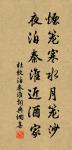 煙籠寒水月籠沙
夜泊秦淮近酒家
杜牧泊秦淮